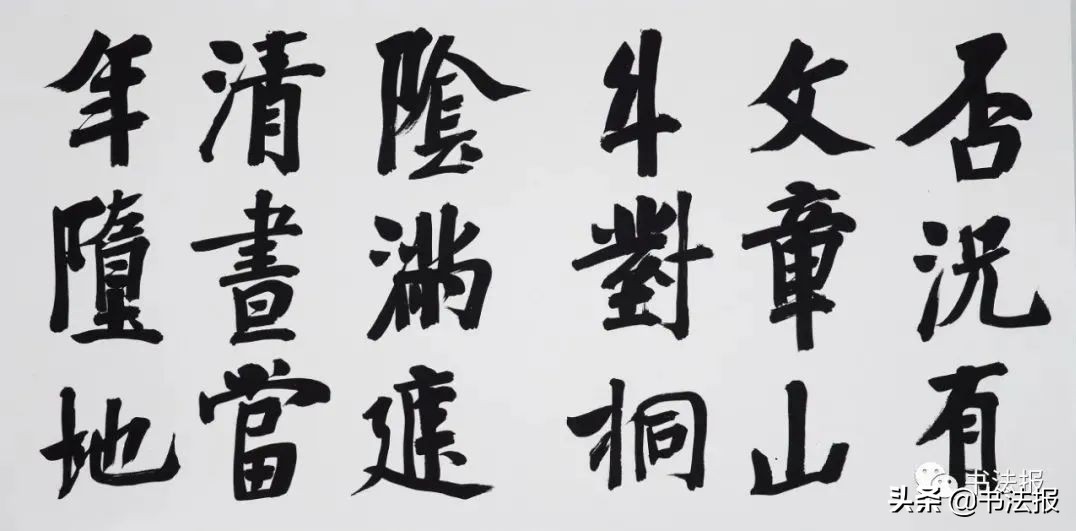 否況有
文章山
斗對桐
陰滿庭
清晝當
年墮地
书法报
头条 @书法报